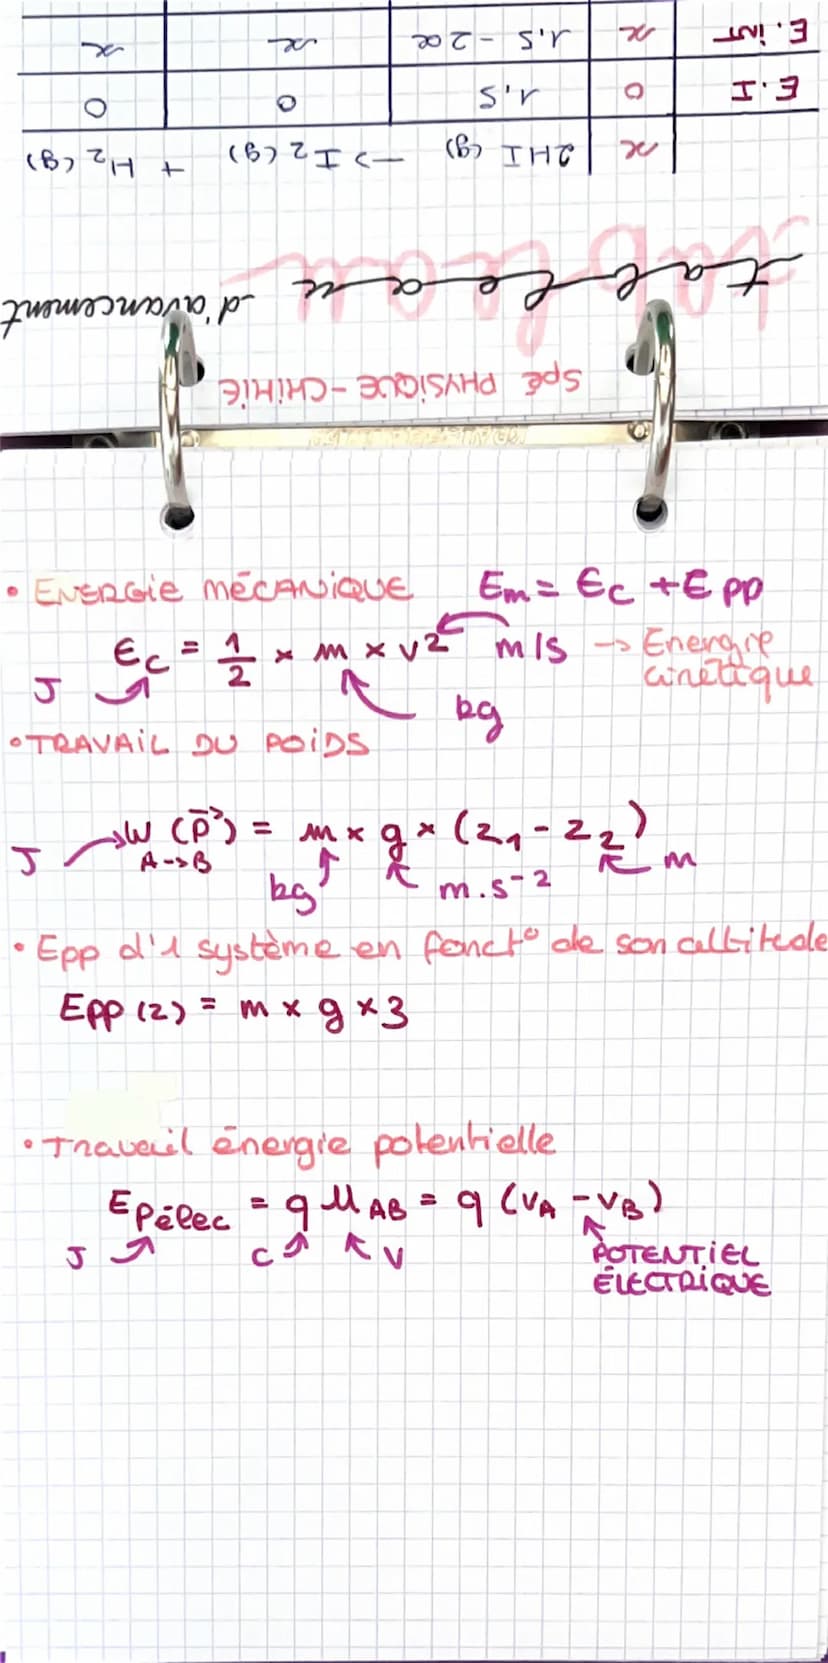 SPÉ PHYSIQUE-CHIMIE
tableau d'avancement
x 2HI (g) -> I2 (g) + H2 (g)
E.I 0 1,5 0 0
E.int x 1,5 - 2x x x
• ENERGIE MÉCANIQUE Em = Ec + Epp
Ec = 1/2 × m × v2 m/s -> Energie cinétique
J kg
• TRAVAIL DU POIDS
J W (P) = m × g × (z1 - z2) m
A->B kg m.s-2
• Epp d'1 système en fonct° de son altitude
Epp (z) = m × g × 3
• Travail énergie potentielle
Epélec = q UAB = q (VA - VB)
J C V POTENTIEL
ÉLECTRIQUE